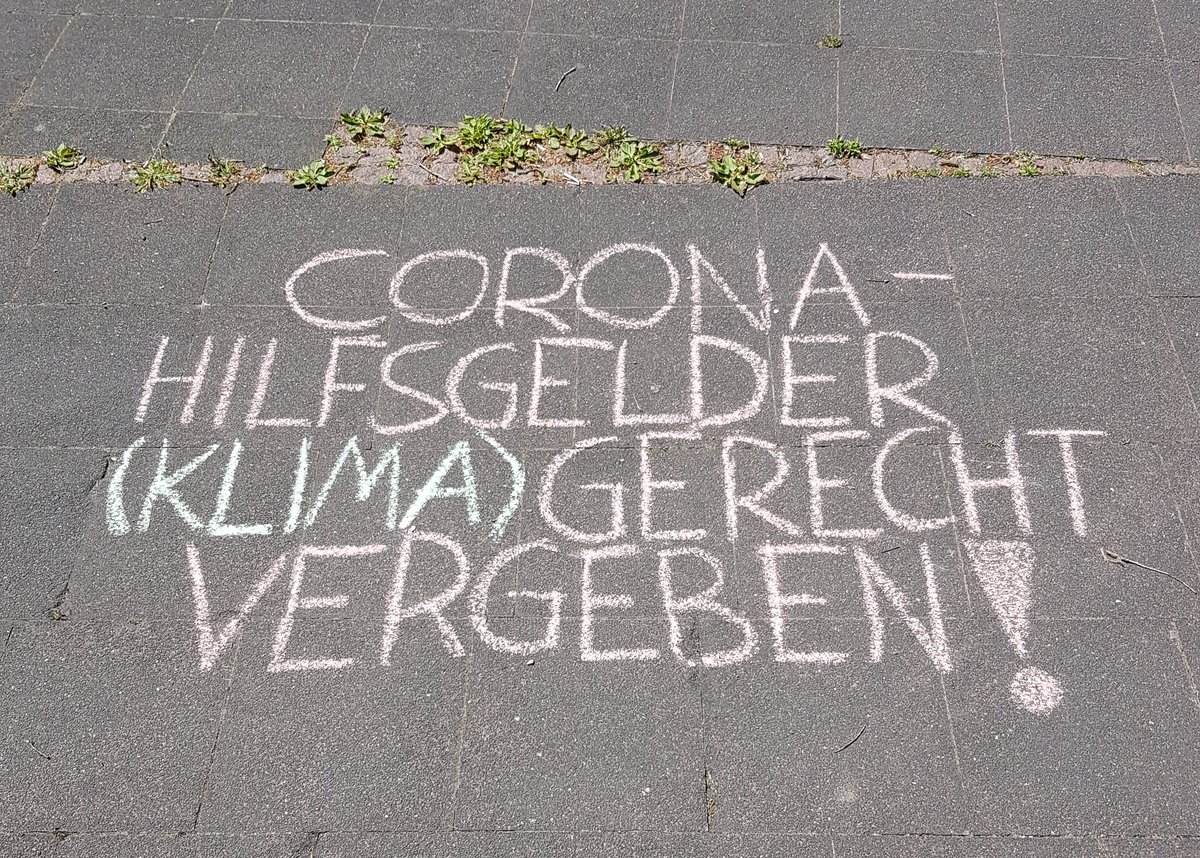 CORONA-
HILFSGELDER
(KLIMA) GERECHT
VERGEBEN!